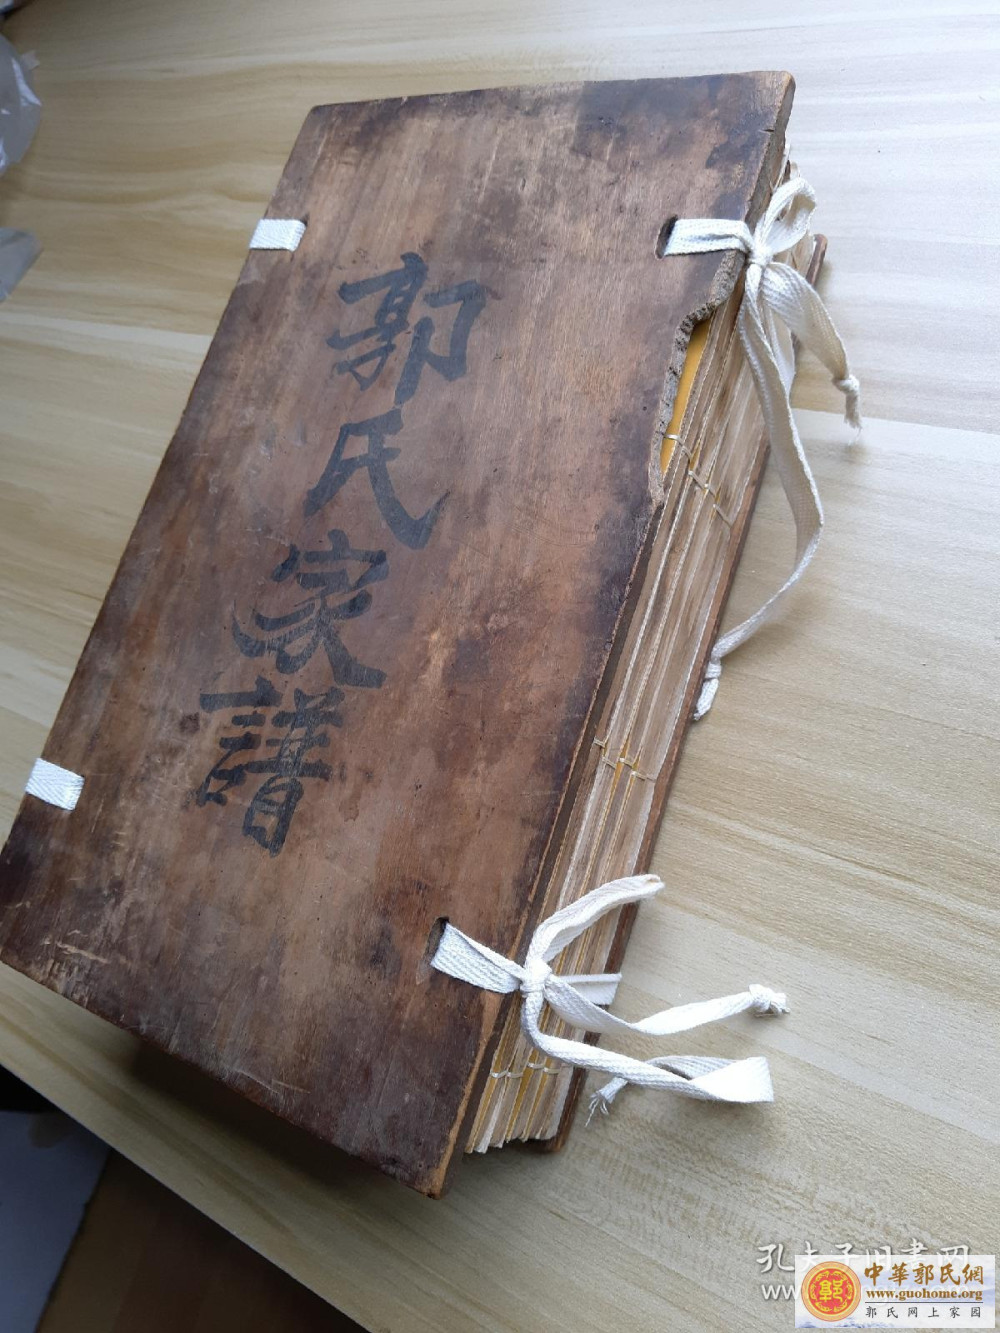 郭氏家譜
孔夫子旧書网
www.
中華郭氏網
www.guohome.org
郭氏网上家园
郭